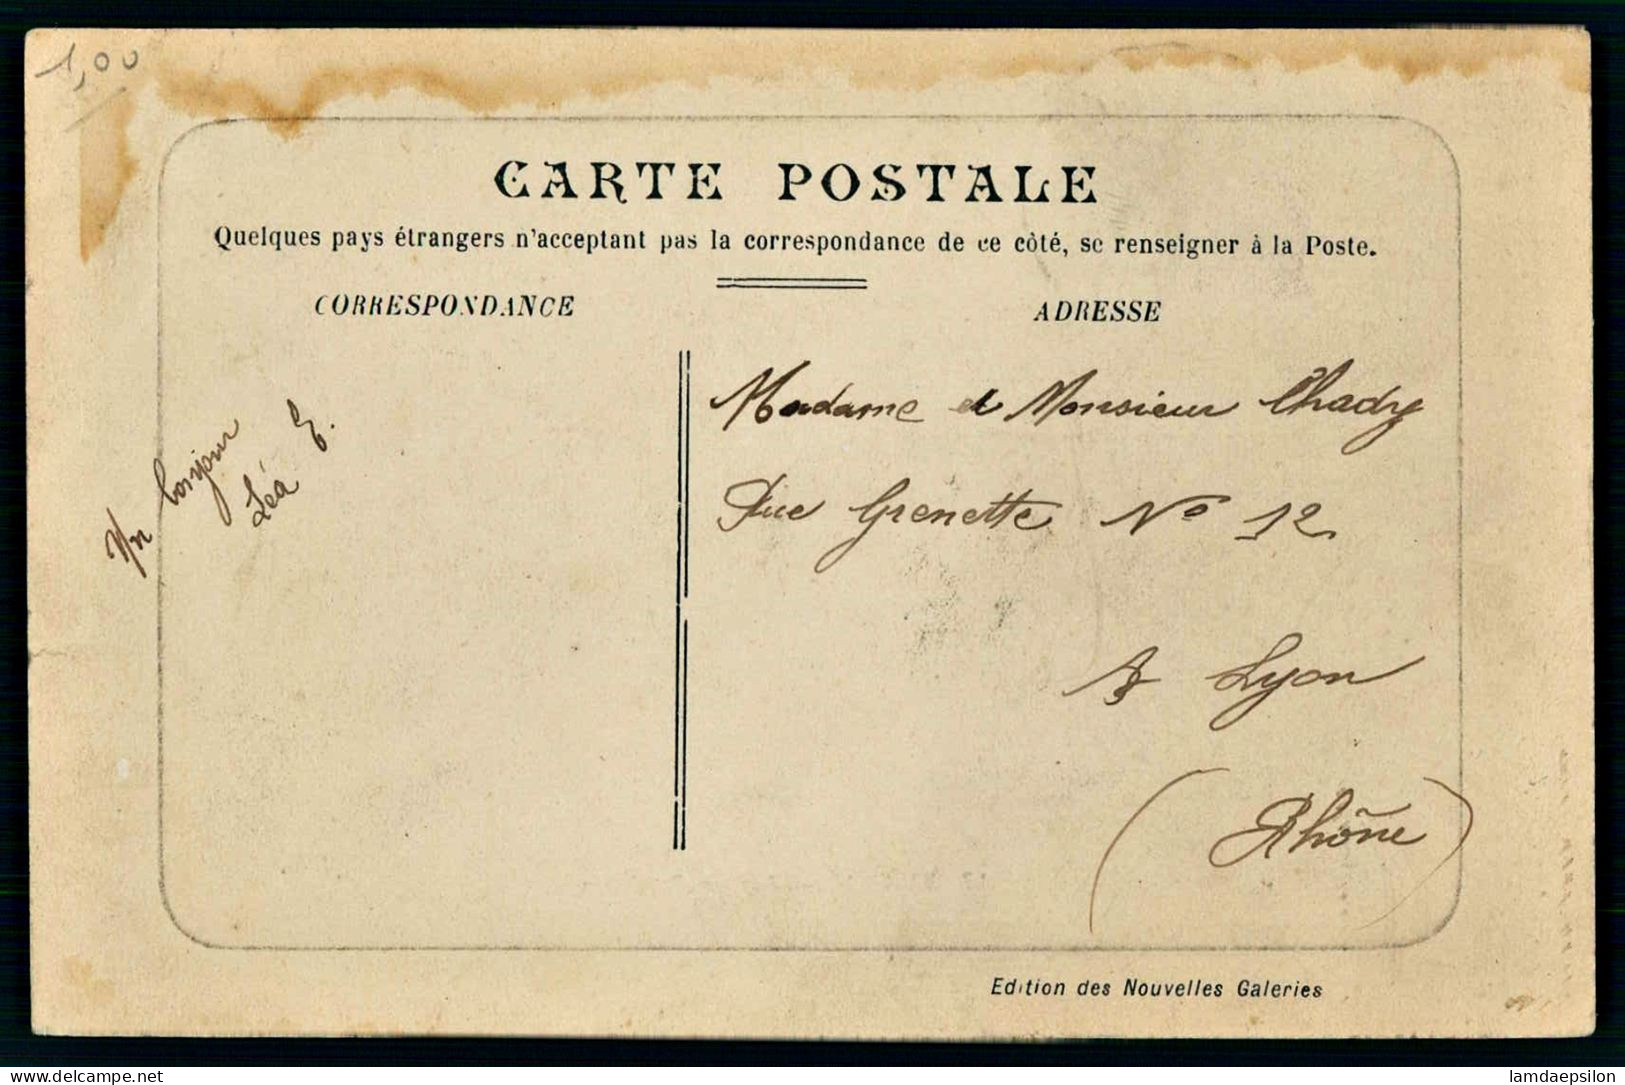 1,00
CARTE POSTALE
Quelques pays étrangers n'acceptant pas la correspondance de ce côté, se renseigner à la Poste.
CORRESPONDANCE
Un bonjour
Léa E.
ADRESSE
Madame et Monsieur Chady
Rue Grenette No 12
A Lyon
(Rhône)
Edition des Nouvelles Galeries
delcampe.net
lamdaepsilon